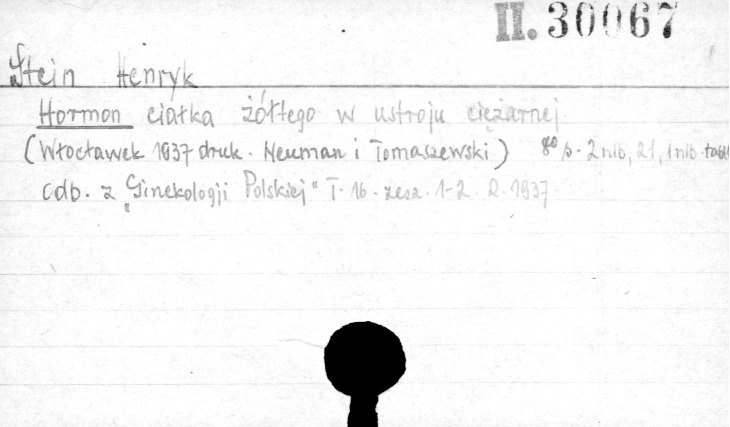 II. 30067
Stein Henryk
Hormon ciałka żółtego w ustroju ciężarnej
(Włocławek 1937 druk. Neuman i Tomaszewski) 8° s. 2 nlb, 21, 1 nlb. tabl
Odb. z "Ginekologji Polskiej" T. 16. zesz. 1-2. R. 1937